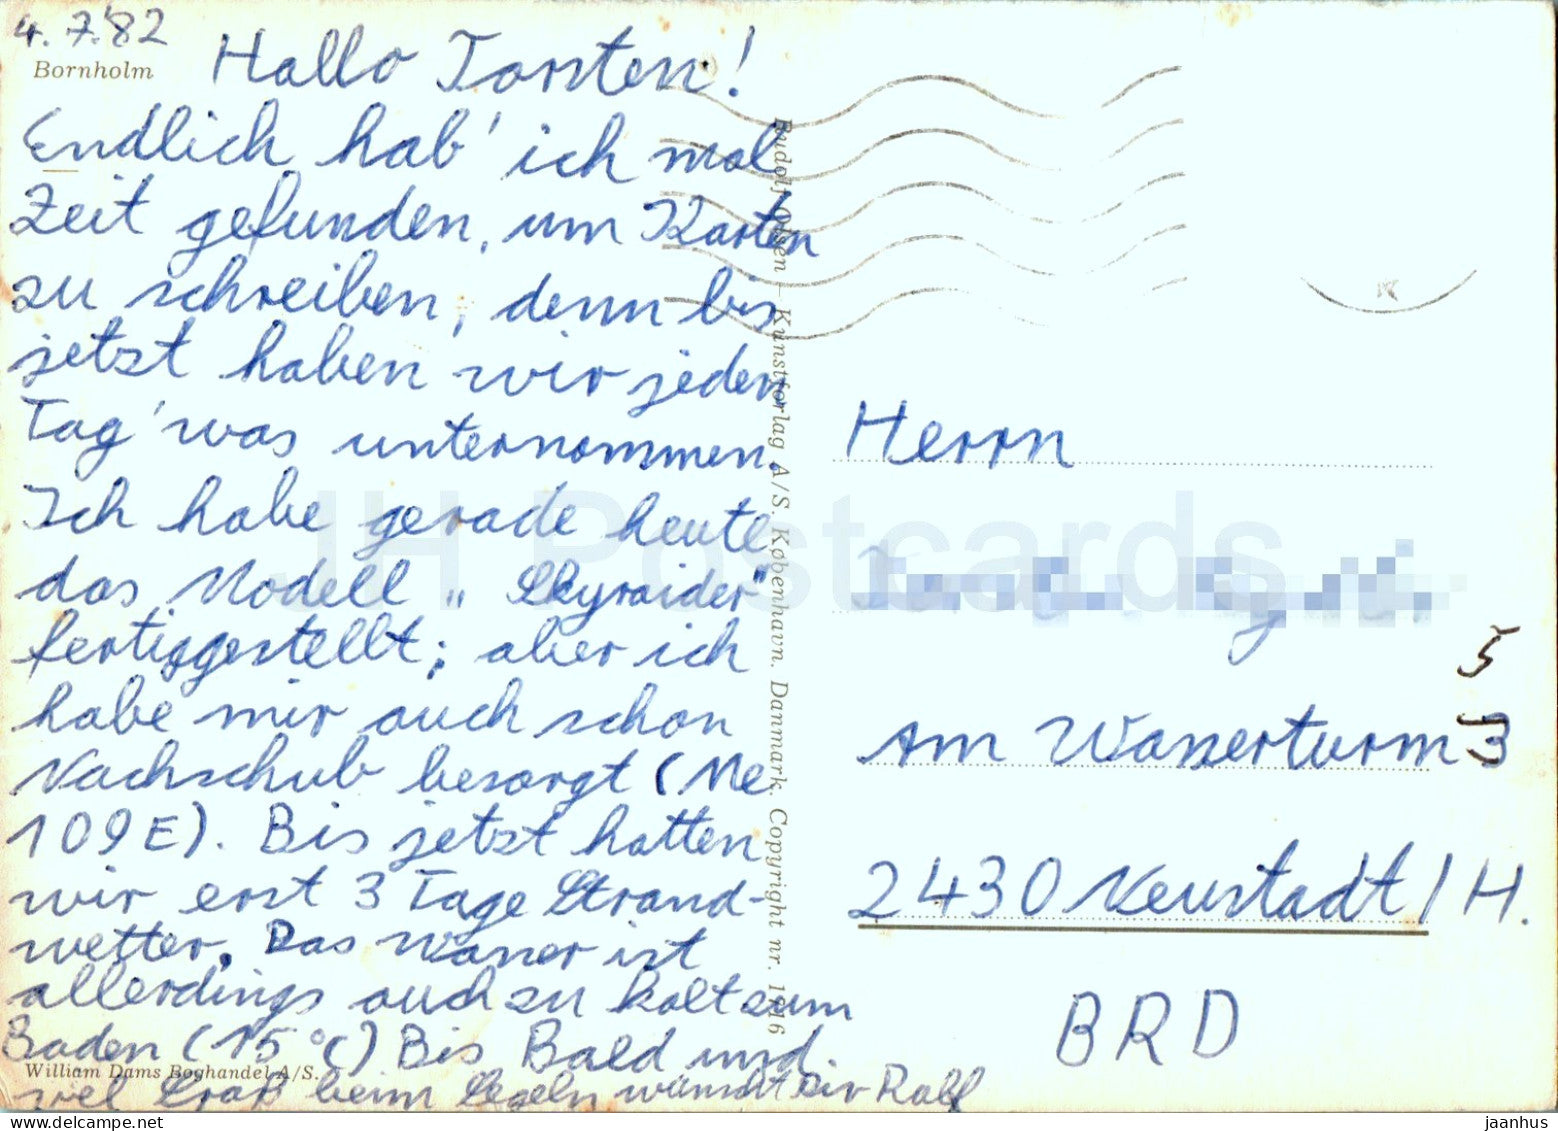 4.7.'82
Bornholm
Hallo Torsten!
Endlich hab' ich mal
Zeit gefunden, um Karten
zu schreiben, denn bis
jetzt haben wir jeden
Tag 'was unternommen.
Ich habe gerade heute
das Modell „Skyraider"
fertiggestellt; aber ich
habe mir auch schon
Nachschub besorgt (Me
109E). Bis jetzt hatten
wir erst 3 Tage Strand-
wetter. Das Wasser ist
allerdings auch zu kalt zum
Baden (15°C) Bis Bald und
viel Spaß beim Segeln wünscht Dir Ralf
William Dams Boghandel A/S.
Rudolf Olsen - Kunstforlag A/S. København. Danmark. Copyright nr. 1416
Herrn
Am Wasserturm 3
5
2430 Neustadt / H.
BRD
JH Postcards
jaanhus